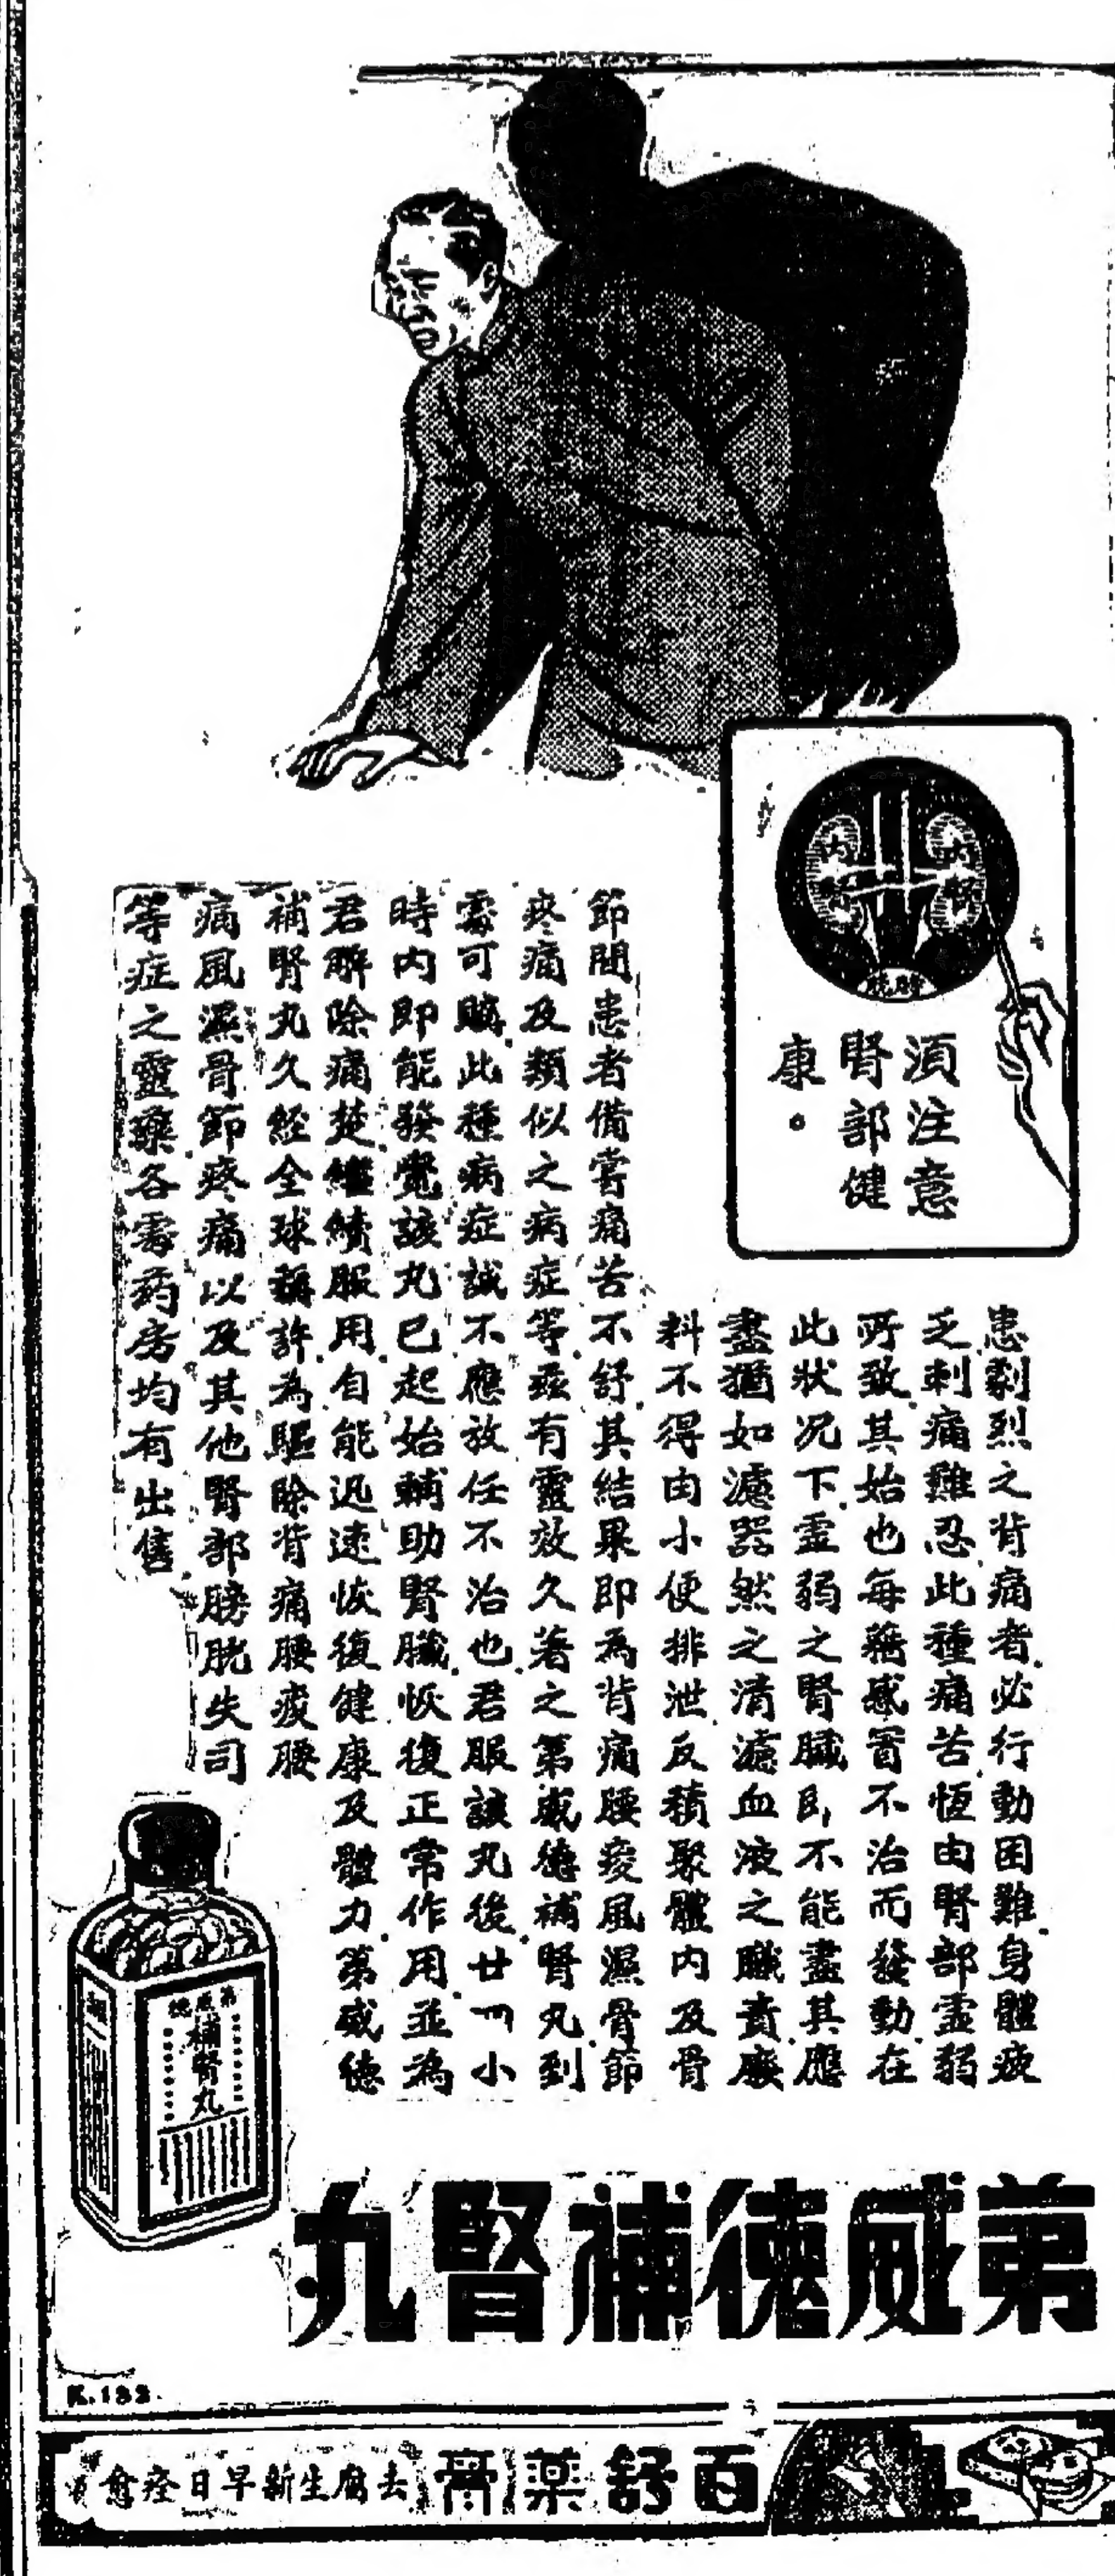 內腎
內腎
膀胱
須注意
腎部健
康。
患劇烈之背痛者必行動困難身體疲
乏刺痛難忍此種痛苦恆由腎部虛弱
所致其始也每藉感冒不治而發動在
此狀况下虛弱之腎臟即不能盡其應
盡猶如濾器然之清濾血液之職責廢
料不得由小便排泄反積聚體內及骨
節間患者備嘗痛苦不舒其結果即為背痛腰痠風濕骨節
疼痛及類似之病症等兹有靈效久著之第威德補腎丸到
處可購此種病症誠不應放任不治也君服該丸後廿四小
時内即能發覺該丸已起始輔助腎臟恢復正常作用並為
君解除痛楚繼續服用自能迅速恢復健康及體力第威德
補腎丸久經全球稱許為驅除背痛腰痠腰
痛風濕骨節疼痛以及其他腎部膀胱失司
等症之靈藥各處葯房均有出售
第威德
補腎丸
第威德補腎丸
K.132.
百舒藥膏
去腐生新早日痊愈